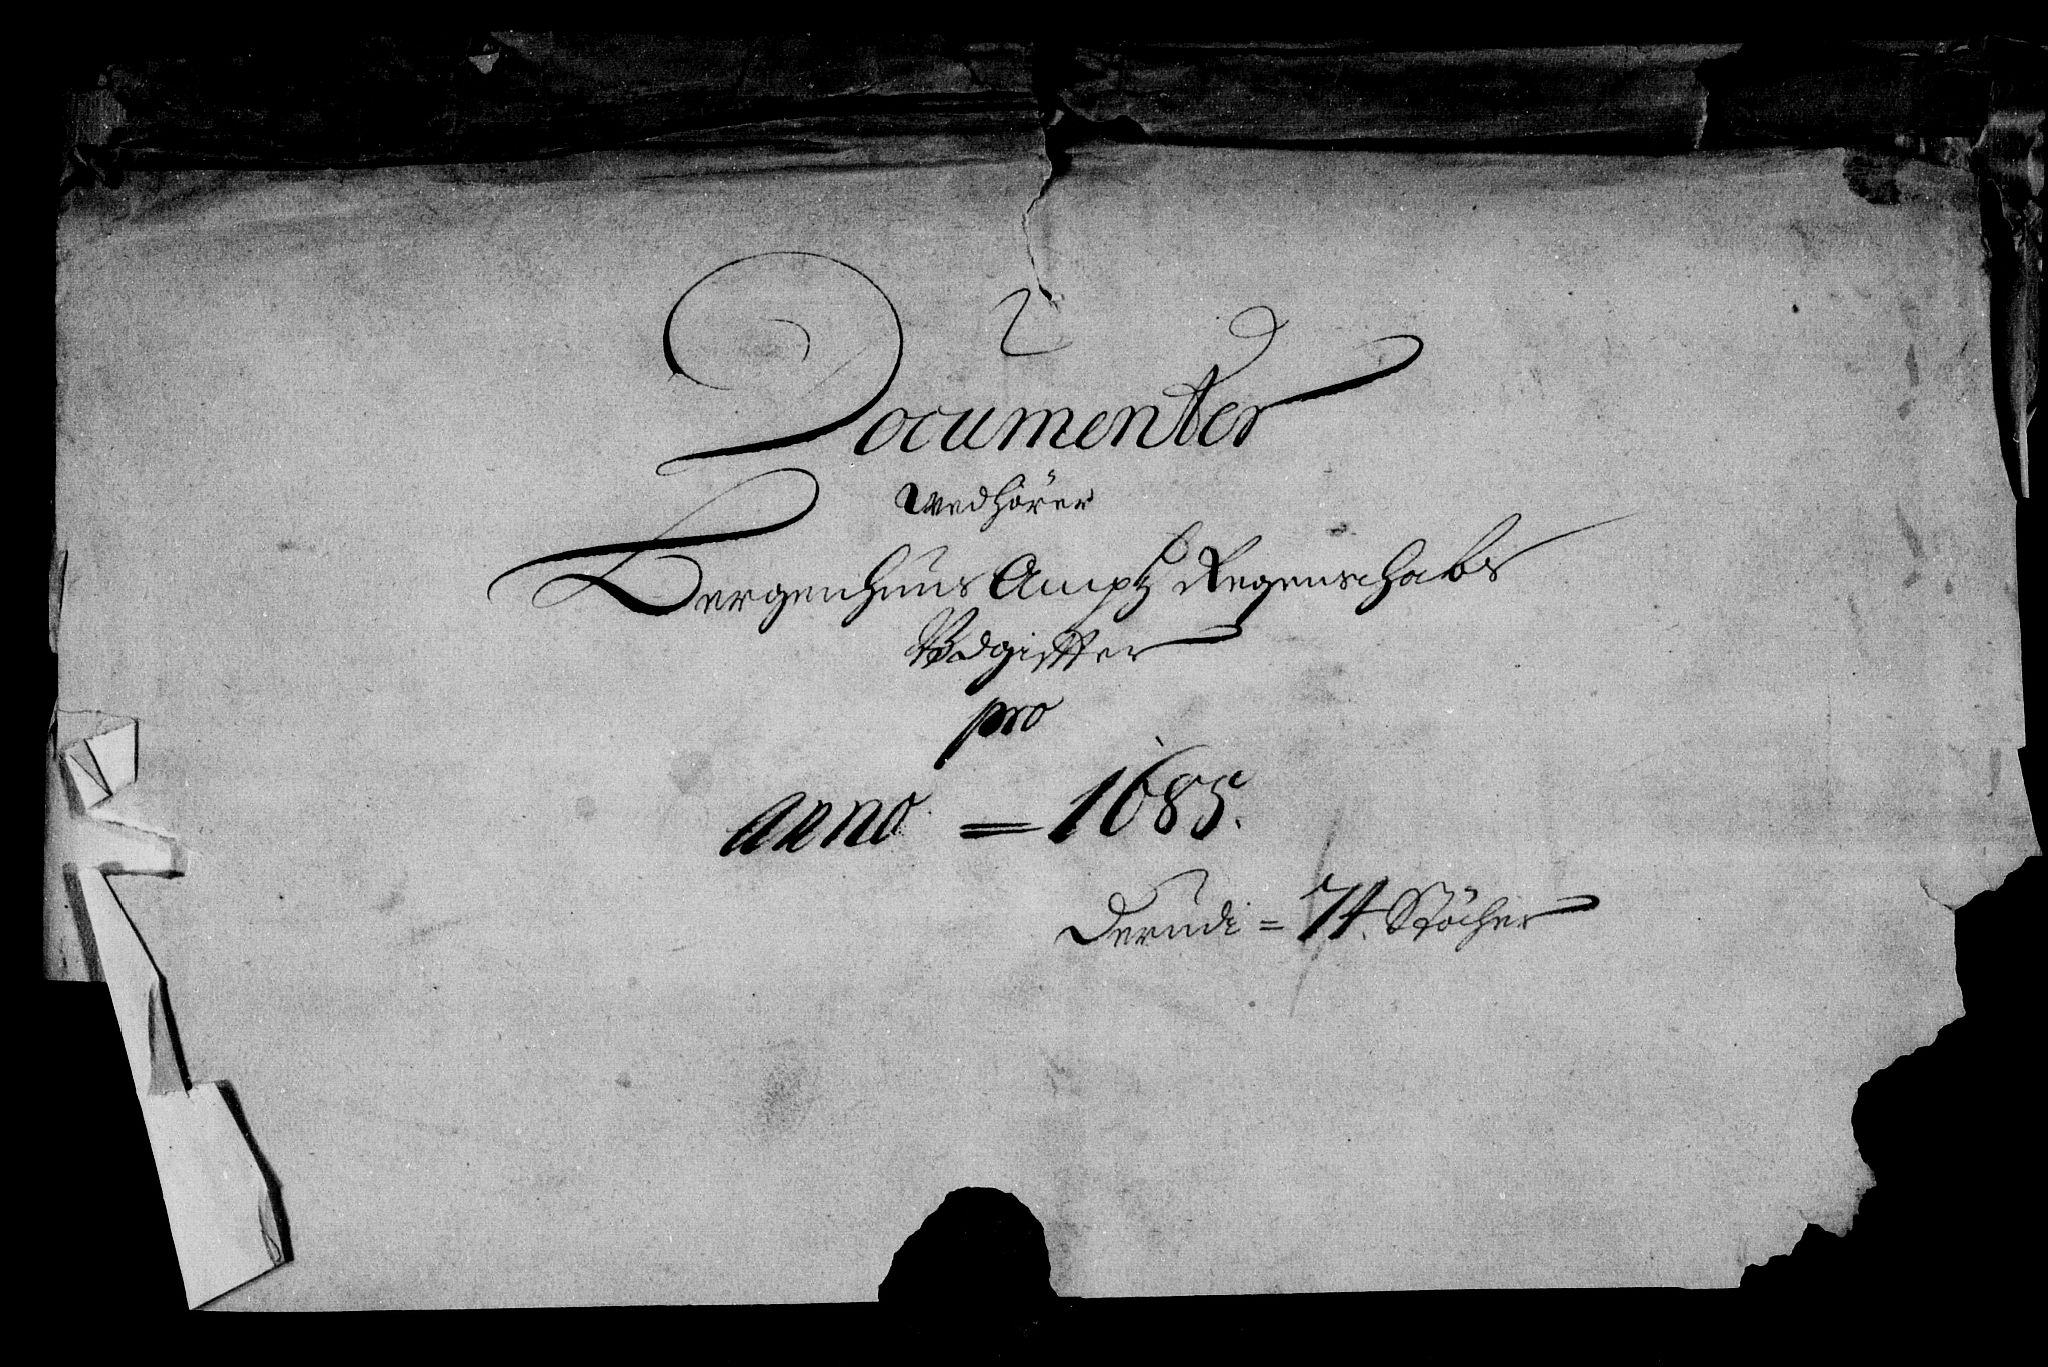 Documenter
Wedhörer
Bergenhuus Amptz Regenschabs
Vdgiffter
pro
anno = 1685.
Derudi = 74. Stöcher